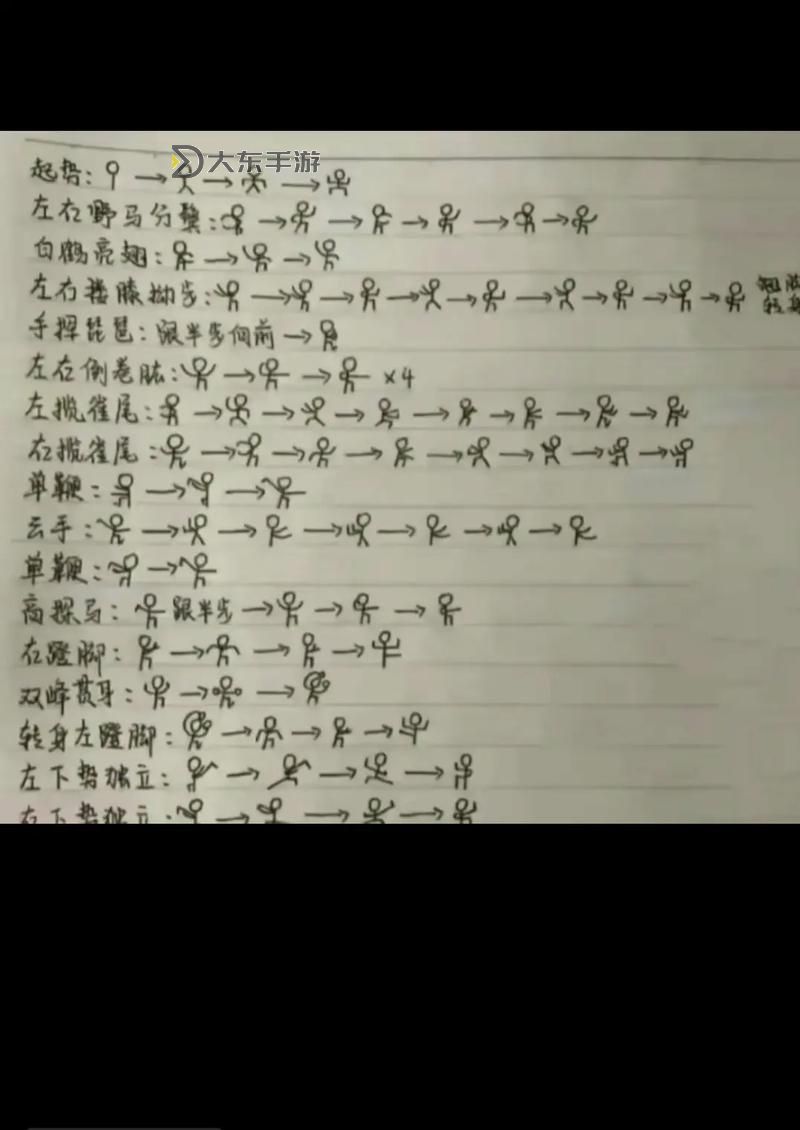 大东手游
起势: → → →
左右野马分鬃: → → → → →
白鹤亮翅: → →
左右搂膝拗步: → → → → → → →
手挥琵琶: 跟半步向前 →
左右倒卷肱: → → ×4
左揽雀尾: → → → → → → →
右揽雀尾: → → → → → → →
单鞭: → →
云手: → → → → → →
单鞭: →
高探马: 跟半步 → → →
右蹬脚: → → →
双峰贯耳: → →
转身左蹬脚: → → →
左下势独立: → → →
右下势独立: → → →